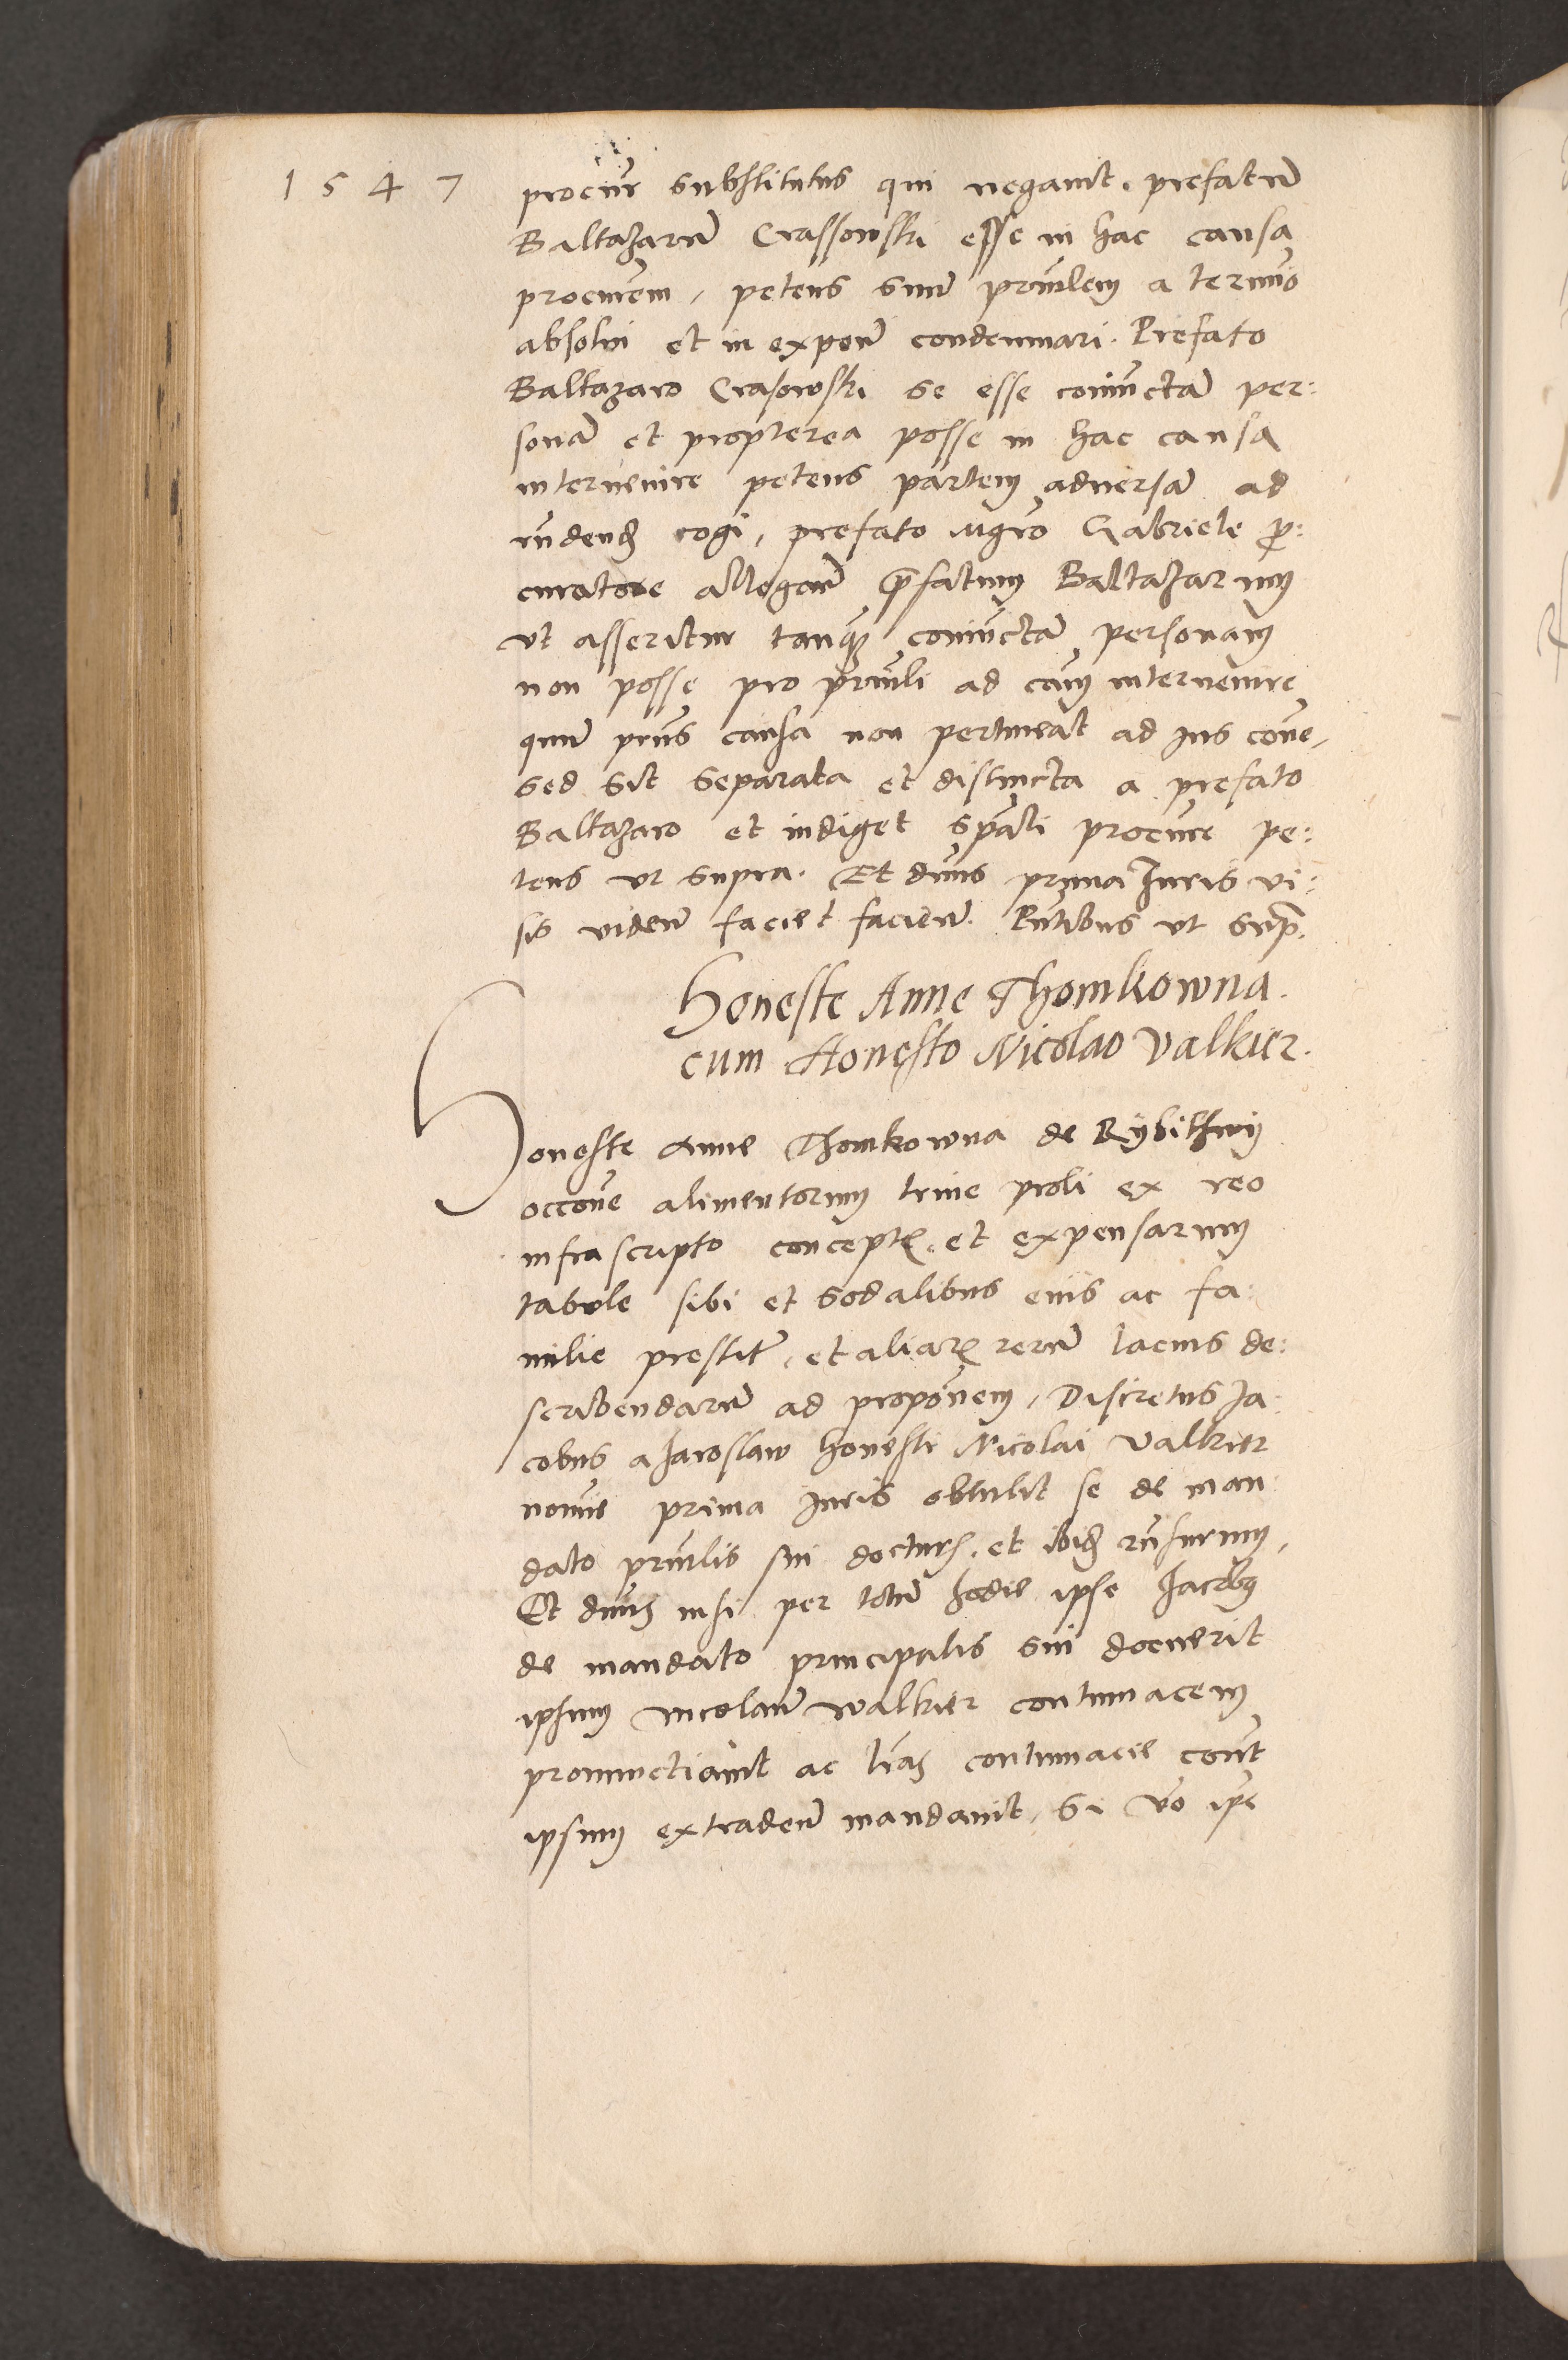 1 5 4 7
procur substitutus qui negavit. prefatum
Baltazarum Crassowski esse in hac causa
procurem, petens suum prinlem a termio
absolvi et in expen condemnari. Prefato
Baltazaro Crasowski se esse coniunctam per:
sonam et propterea posse in hac causa
intervenire petens partem adversam ad
rndend cogi, prefato Mgro Gabriele pro:
curatore allegan prefatum Baltazarum
ut asseritur tanq coniunctam personam
non posse pro prinli ad cam intervenire
quum prius causa non pertineat ad ius cone,
sed sit separata et distincta a prefato
Baltazaro et indiget spali procure pe:
tens ut supra. Et dnus prima Juris vi:
sis viden faciet facien. Pntibus ut supra.
Honeste Anne Thomkowna
cum Honesto Nicolao Valkier.
Honeste Anne Thomkowna de Rÿbithwy
occone alimentorum trine proli ex reo
infrascripto concepte. et expensarum
tabule sibi et sodalibus eius ac fa:
milie prestit, et aliarum rerum lacius de:
scribendarum ad proponem, Discretus Ja:
cobus a Jaroslaw honesti Nicolai Valkier
nomie prima Juris obtulit se de man:
dato prinlis sui docturum. et ibid rnsurum,
Et dnus nisi per totum hodie ipse Jacobus
de mandato principalis sui docuerit
ipsum nicolaum walkier contumacem
pronunctiavit ac lras contumacie cont
ipsum extraden mandavit, Si vo ipe